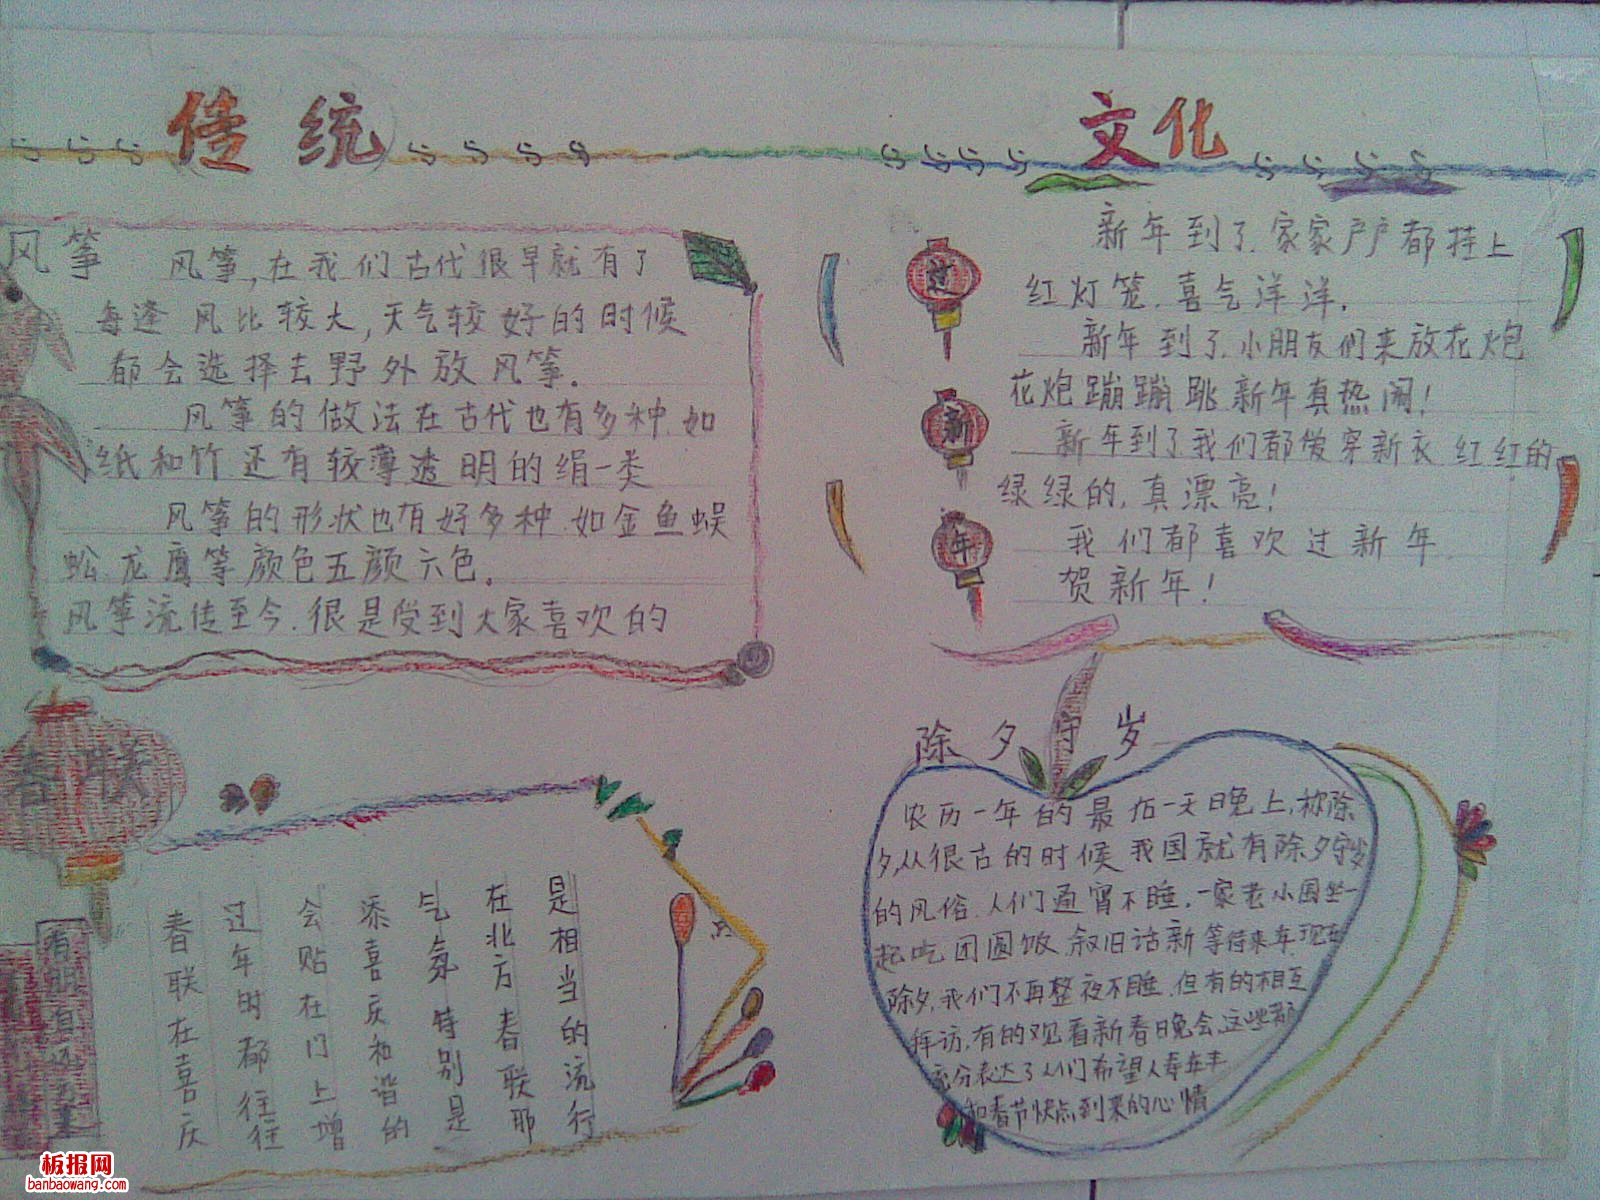 传统
文化
风筝
风筝,在我们古代很早就有了
每逢风比较大,天气较好的时候
都会选择去野外放风筝.
风筝的做法在古代也有多种.如
纸和竹还有较薄透明的绢一类
风筝的形状也有好多种.如金鱼蜈
蚣.龙鹰等颜色五颜六色.
风筝流传至今.很是受到大家喜欢的
过
新
年
新年到了.家家户户都挂上
红灯笼.喜气洋洋.
新年到了.小朋友们来放花炮
花炮蹦蹦跳新年真热闹!
新年到了我们都爱穿新衣红红的
绿绿的.真漂亮!
我们都喜欢过新年.
贺新年!
春联
春联在喜庆
过年时都往往
会贴在门上增
添喜庆和谐的
气氛特别是
在北方春联那
是相当的流行
除夕守岁
农历一年的最后一天日晚上,称除
夕,从很古的时候我国就有除夕守岁
的风俗.人们通宵不睡.一家老小围坐一
起吃团圆饭.叙旧话新等待来年.现在
除夕,我们不再整夜不睡.但有的相互
拜访,有的观看新春日晚会.这些都
充分表达了人们希望人寿年丰
和春节快点到来的心情
板报网
banbaowang.com